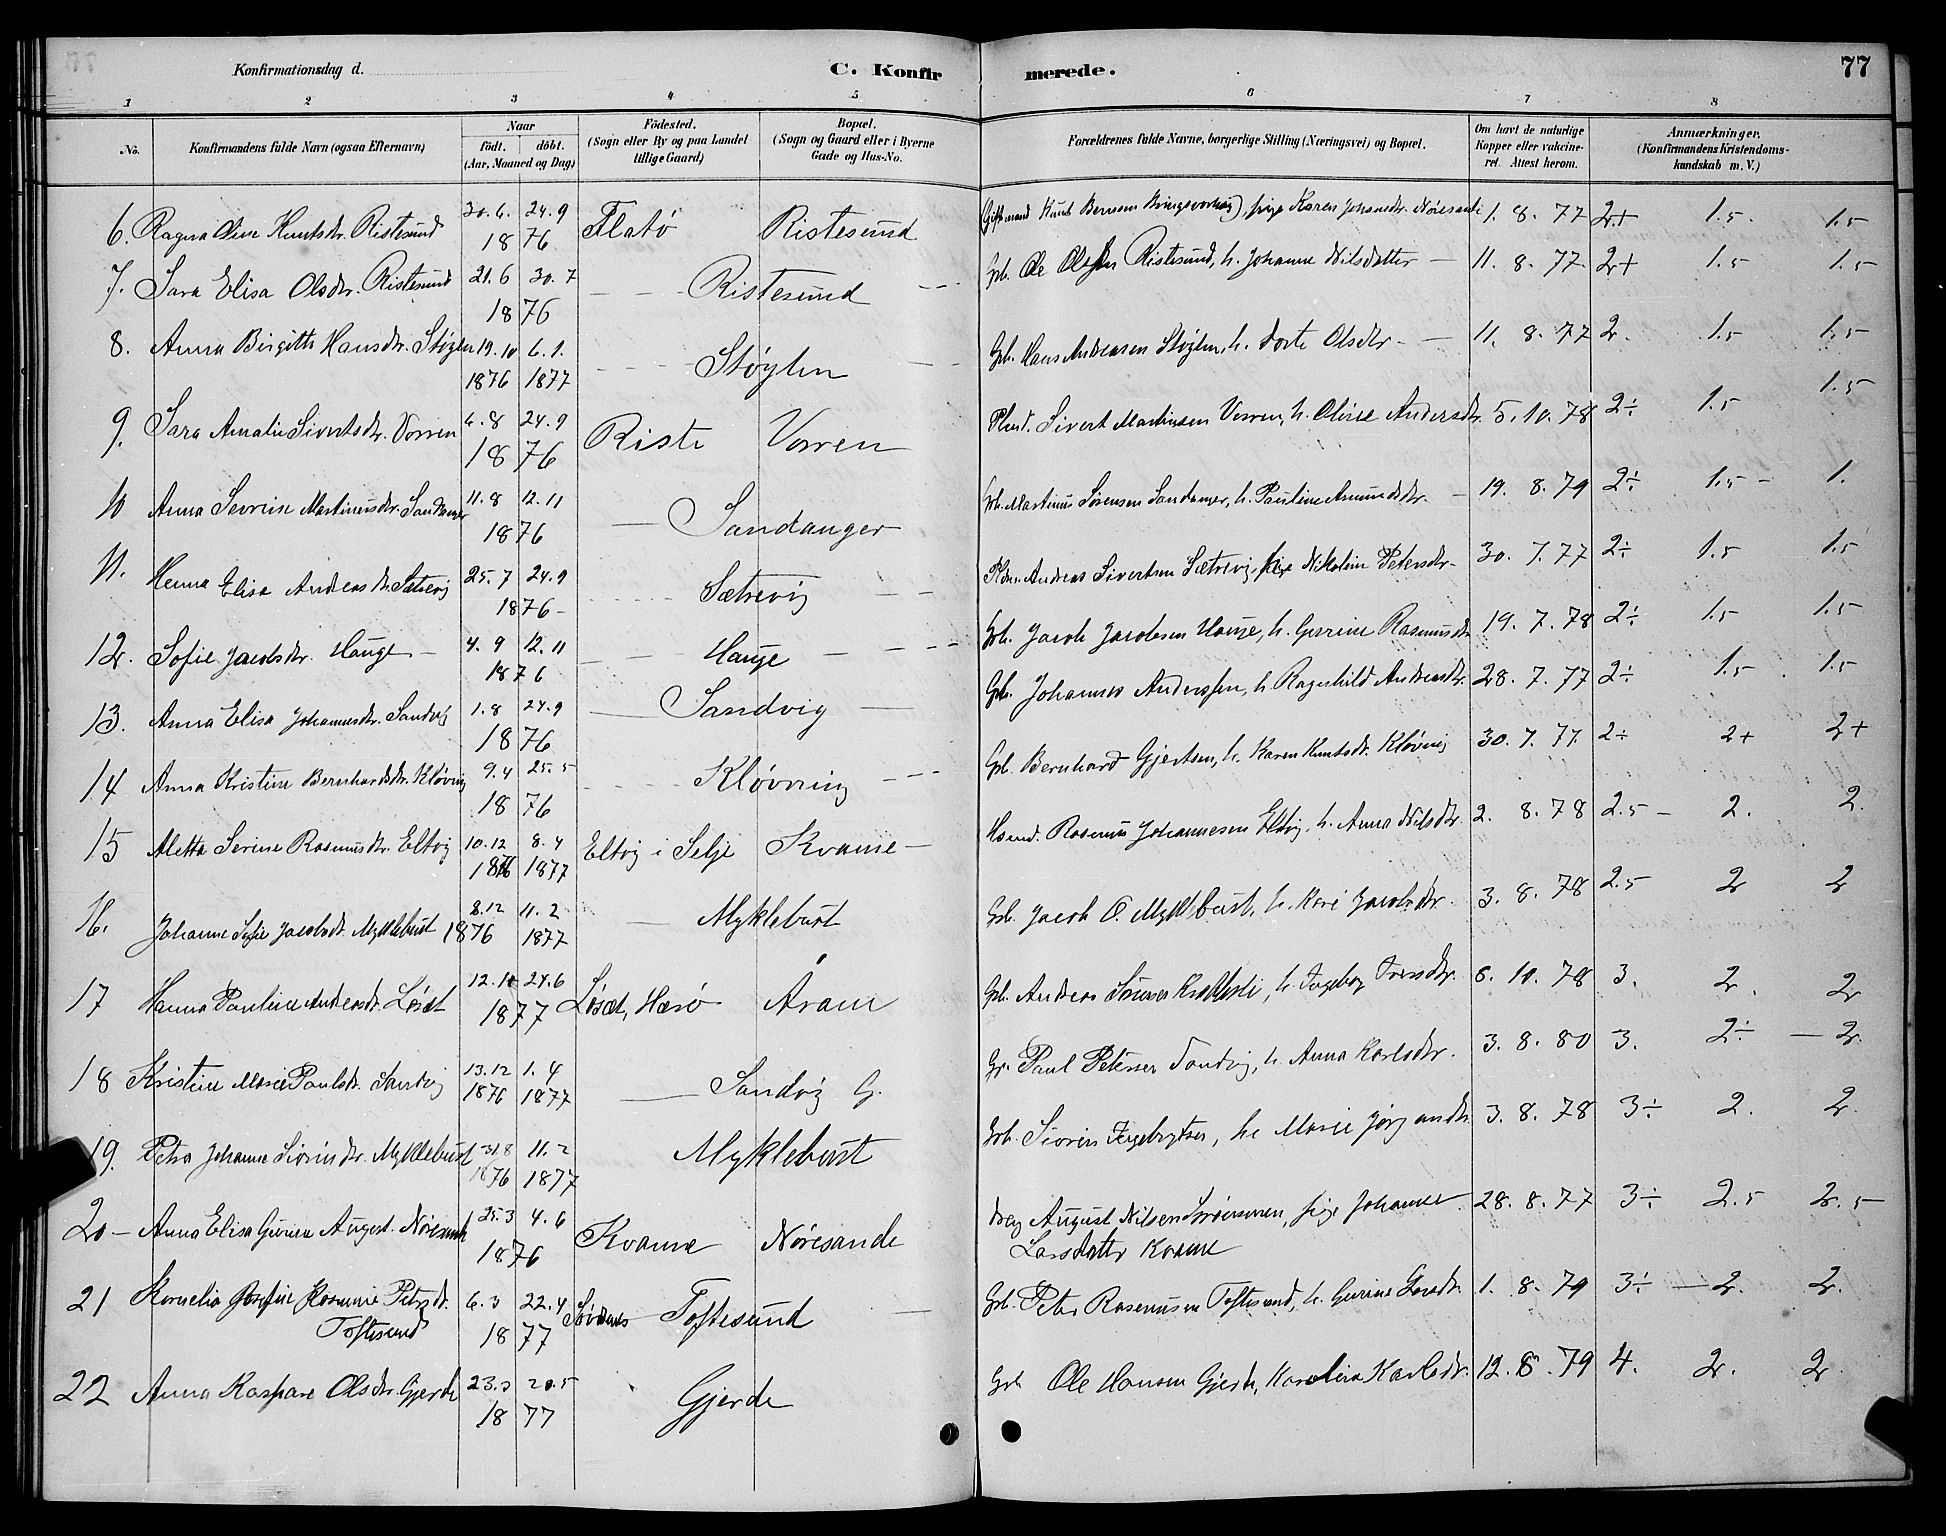 Konfirmationsdag d.
C. Konfir
merede.
77
1 2 3 4 5 6 7 8
No.
Konfirmandens fulde Navn (ogsaa Efternavn)
Naar
födt. döbt.
(Aar, Maaned og Dag)
Födested.
(Sogn eller By og paa Landet
tillige Gaard)
Bopæl.
(Sogn og Gaard eller i Byerne
Gade og Hus-No.
Forældrenes fulde Navne, borgerlige Stilling (Næringsvei) og Bopæl.
Om havt de naturlige
Kopper eller vakcine-
ret. Attest herom.
Anmærkninger.
(Konfirmandens Kristendoms-
kundskab m. V.)
6. Ragna Oline Knutsdr. Ristesund 30.6. 24.9 Flatø Ristesund Giftmand Knut Bernsen, pige Karen Johansdr. Nøresande 1. 8. 77 2+ 1.5. 1.5
1876
7. Sara Elisa Olsdr. Ristesund 21.6 30.7 — Ristesund — Gb. Ole Olsen Ristesund, h. Johanne Nilsdatter — 11. 8. 77 2+ 1.5 1.5
1876
8. Anna Birgitte Hansdr. Støylen 19.10 6.1. — Støylen — Gb. Hans Andreasen Støylen, h. Dorte Olsdr. — 11. 8. 77 2. 1.5 1.5
1876 1877
9. Sara Amalie Sivertsdr. Vorren 6.8 24.9 Riste Vorren Sivert Martinsen Vorren, h. Oline Andersdr. 5.10.78 2÷ 1.5 1.5
1876
10 Anna Sevrine Martinusdr. Sandanger 11.8 12.11 — Sandanger Gb. Martinus Sørensen Sandanger, h. Pauline Amundsdr. — 19. 8. 79 2÷ 1.5 — 1.
1876
11. Hanna Elisa Andreasdr. Sætrevig 25.7 24.9 — Sætrevig — Andreas Sivertsen Sætrevig, pige Nikoline Petersdr. — 30. 7. 77 2÷ 1.5 1.5
1876 —
12. Sofie Jacobsdr. Hauge — 4.9 12.11 — Hauge — Gb. Jacob Jacobsen Hauge, h. Gurine Rasmusdr. 19. 7. 78 2÷ 1.5 1.5
1876
13. Anna Elisa Johannesdr. Sandvig 1.8 24.9 — Sandvig — Gb. Johannes Anderssen, h. Ragnhild Andreasdr. 28. 7. 77 2÷ 1.5 1.5
1876
14 Anna Kristine Bernhardsdr. Kløvning 9.4 25.5 — Kløvning — Gb. Bernhard Gjertsen, h. Karen Knutsdr. Kløvning 30. 7. 77. 2÷ 2+ 2+
1876
15 Aletta Serine Rasmusdr. Eltvig 10.12 8.4 Eltvig i Selje Kvame — Rasmus Johannesen Eltvig, h. Anna Nilsdr. 2. 8. 78 2.5 — 2. 2.
1876 1877
16. Johanne Sofie Jacobsdr. Myklebust 8.12 11.2 — Myklebust Gb. Jacob O. Myklebust, h. Kari Jacobsdr. 3. 8. 78 2.5 2 2
1876 1877
17 Hanna Pauline Andreasdr. Løset 12.10 24.6 Løset, Herø Åram Gb. Andreas, h. Ingeborg Iversdr. 6. 10. 78 3. 2. 2
1877
18 Kristine Marie Paulsdr. Sandvig 13.12 1.4 — Sandvig G. Paul Petersen Sandvig, h. Anna Karlsdr. 3. 8. 80 3. 2÷ — 2.
1876 1877
19. Petra Johanne Siversdr. Myklebust 31.8 11.2 Myklebust Gb. Siver Ingebrigtsen, h. Marie Jørgensdr. 3. 8. 78 3÷ 2. 2.
1876 1877
20 — Anna Elisa Gurine Augustd. Nøresande 25.3 4.6 Kvame Nøresande August Nilsen, pige Johanne 28. 8. 77 3÷ 2.5 2.5
1876 Larsdatter Kvame
21 Kornelia Josefine Rasmine Petersdr. 6.3 22.4 Toftesund — Gb. Peter Rasmusen Toftesund, h. Gurine Larsdr. 1. 8. 79 3÷ — 2. 2.
Toftesund 1877
22 Anna Kaspare Olsdr. Gjerde 23.3 20.5 Gjerde Gb. Ole Hansen Gjerde, Karolina Karlsdr. 12. 8. 79 4. 2. 2
1877